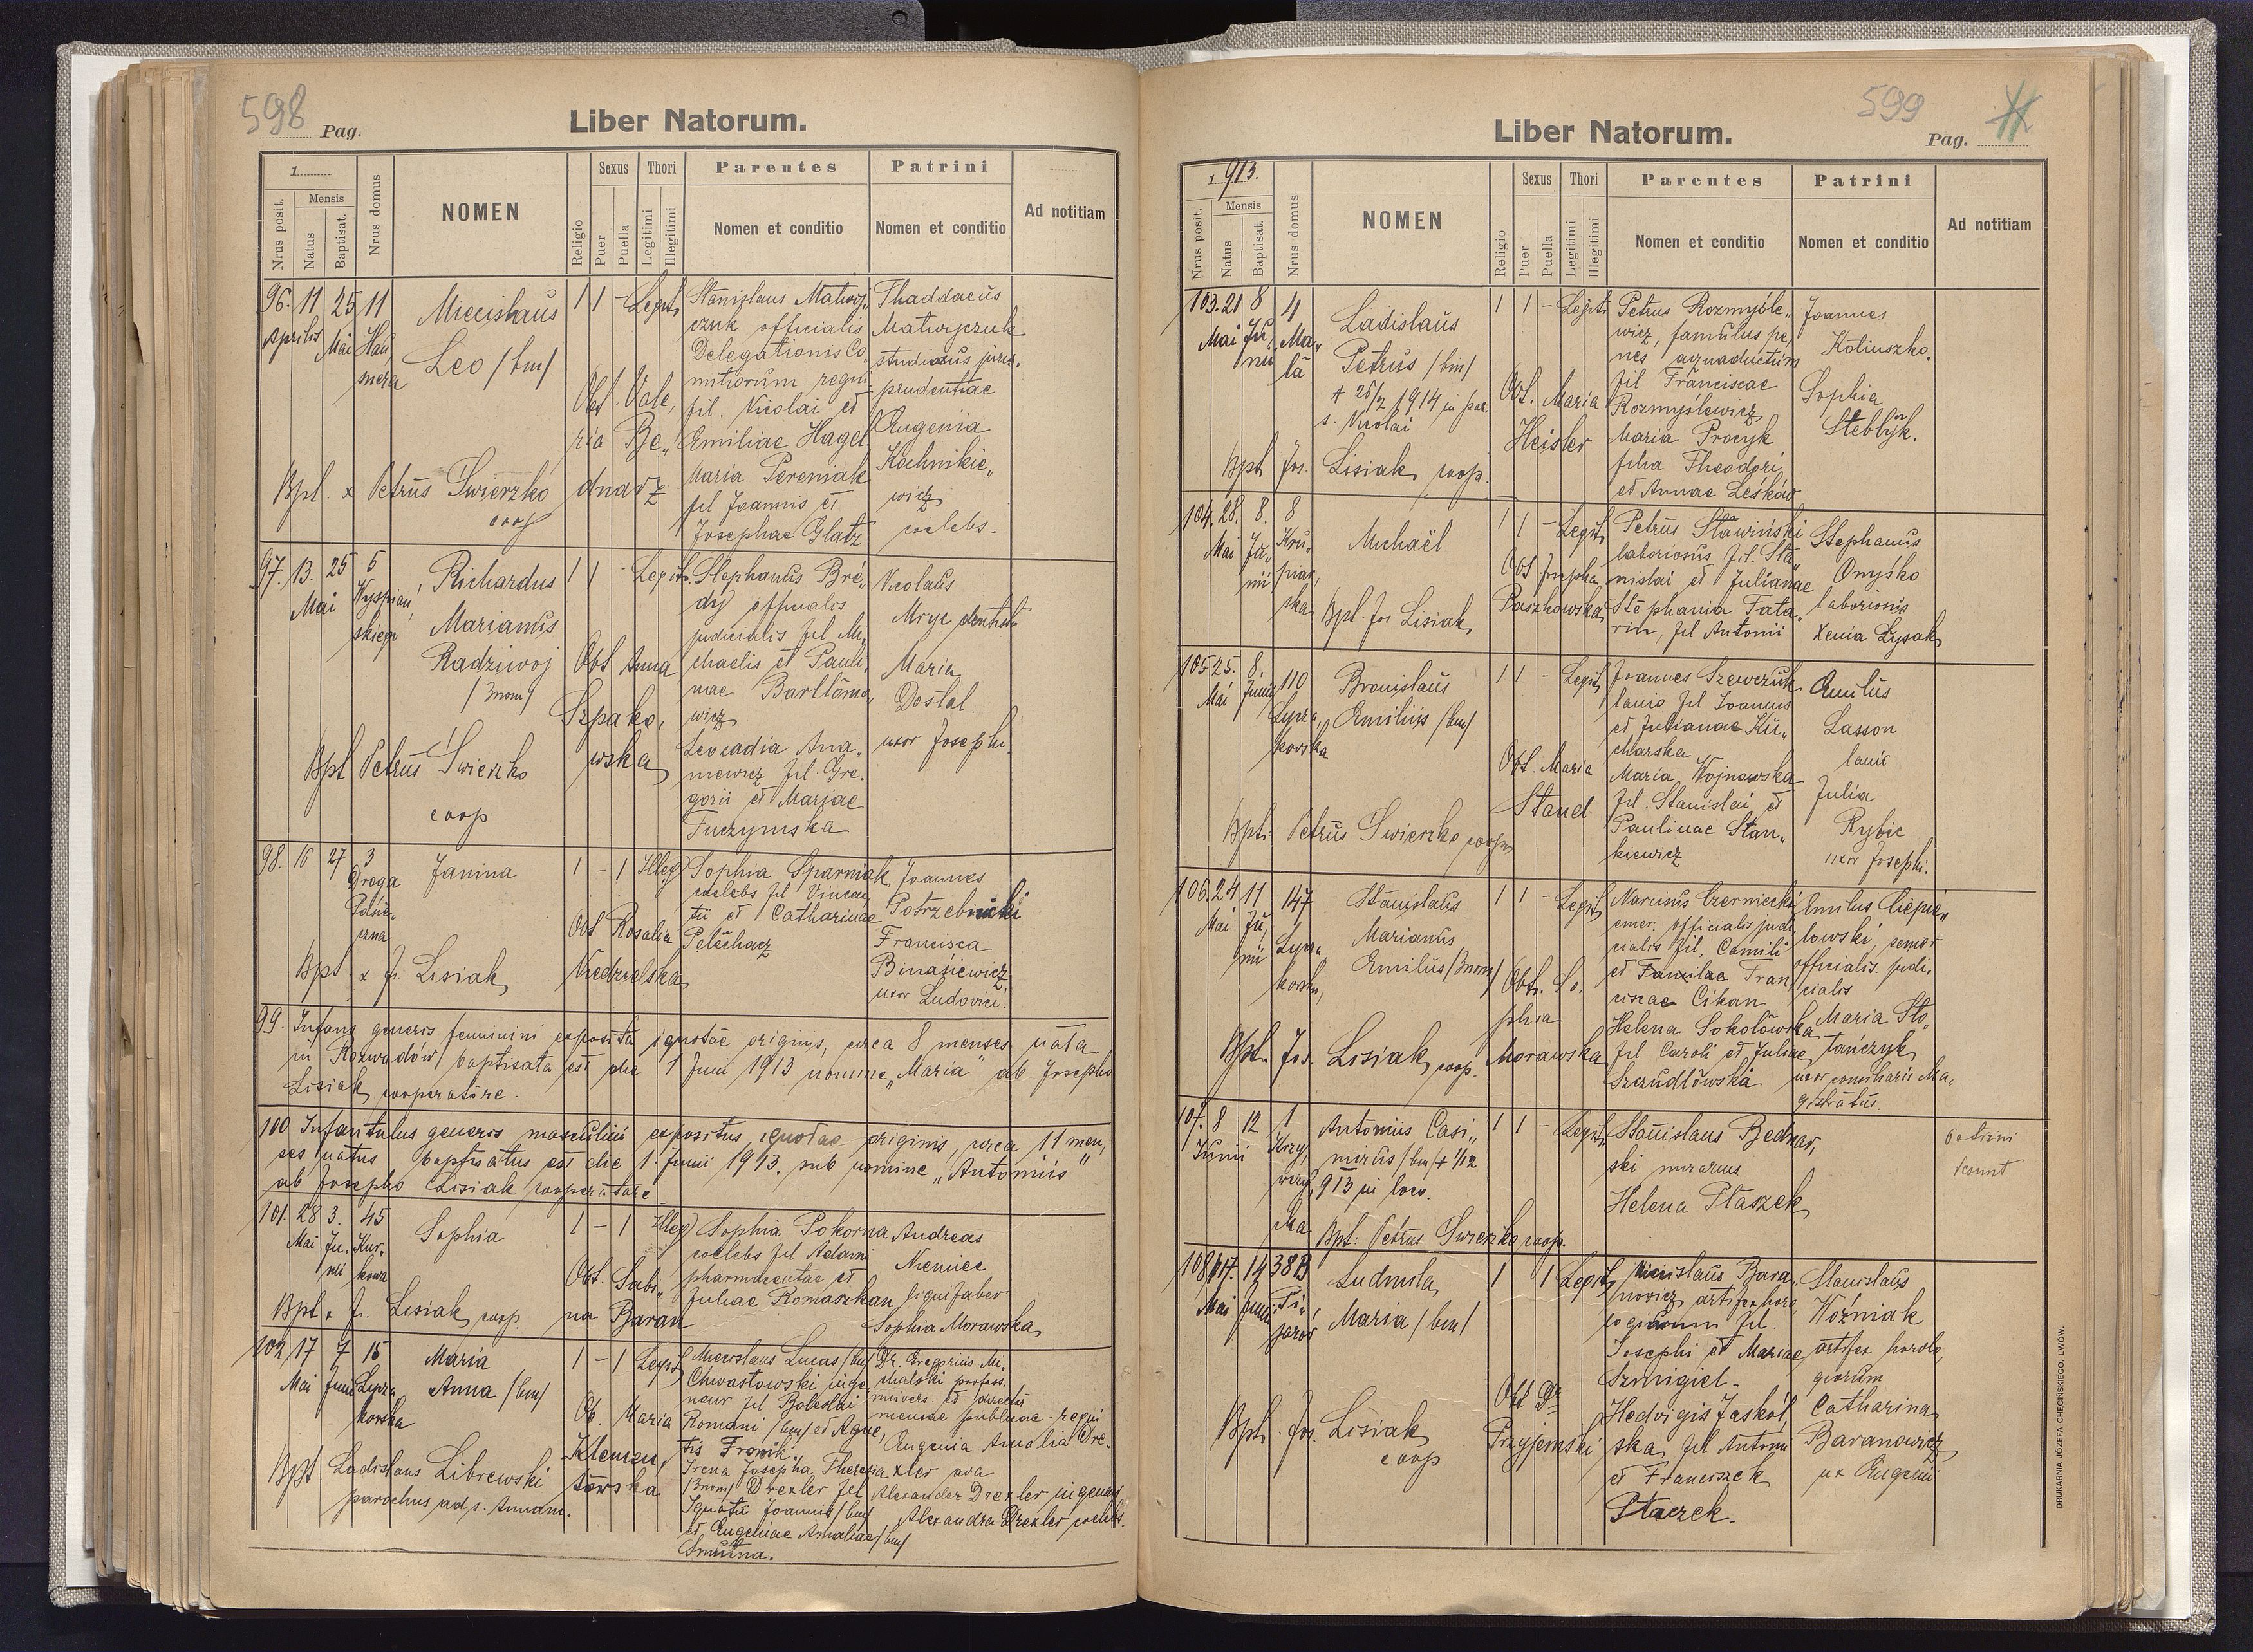 598 Pag.
Liber Natorum.
1
Mensis
Nrus posit.
Natus
Baptisat.
Nrus domus
NOMEN
Religio
Sexus
Puer
Puella
Thori
Legitimi
Illegitimi
Parentes
Nomen et conditio
Patrini
Nomen et conditio
Ad notitiam
96. 11 25 11
Aprilis Mai Hau
snera
Miecislaus
Leo /bm/
1 1 - Legit.
Obst. Vale,
ria Be,,
dnarz
Bpt. x Petrus Swierzko
coop
Stanislaus Matwij,,
czuk officialis
Delegationis Co,
mitiorum regni
fil. Nicolai et
Emiliae Hagel
Maria Pereniak
fil Joannis et
Josephae Glatz
Thaddaeus
Matwijczuk
studiosus juris,
prudentiae
Eugenia
Kachnikie,,
wicz
coelebs.
97. 13. 25 5
Mai Wyspiań,
skiego
Richardus
Marianus
Radziwoj
/3nom/
1 1 - Legit.
Obst Anna
Szpako,
wska
Bpt Petrus Swierzko
coop
Stephanus Bre,,
dy officialis
judicialis fil Mi,
chaelis et Pauli,
nae Bartlomo,
wicz
Leocadia Ana,
niewicz fil. Gre,
gorii et Mariae
Tuczymska
Nicolaus
Mryc dentista
Maria
Dostal
uxor Josephi.
98. 16 27 3
Droga
Janina
1 - 1 Illeg
Obst Rosalia
Niedzielska
Bpt x Js. Lisiak
Sophia Sparniak
coelebs fil Vincen
tii et Catharinae
Pelechacz
Joannes
Potrzebnicki
Francisca
Binasiewicz
uxor Ludovici.
99. Infans generis feminini exposita ignotae originis, circa 8 menses nata
in Rozwadów baptisata est die 1 Junii 1913 nomine „Maria" ab Josepho
Lisiak cooperatore.
100. Infantulus generis masculini expositus, ignotae originis, circa 11 men,
ses natus baptisatus est die 1. Junii 1913. sub nomine „Antonius"
ab Josepho Lisiak cooperatore
101. 28 3. 45
Mai Ju,
nii Kur,
kowa
Sophia
1 - 1 Illeg
Obst. Sabi,,
na Baran
Bpt x Js. Lisiak coop.
Sophia Pokorna
coelebs fil Adami
pharmaceutae et
Juliae Romaszkan
Andreas
Niemiec
lignifaber
Sophia Morawska
102 17 7 15
Mai Junii Lycza
kowska
Maria
Anna /bm/
1 - 1 Legit
Ob. Maria
Klemen,
towska
Bpt Ladislaus Librewski
parochus ad s. Annam.
Miecislaus Lucas /bm/
Chwastowski inge
nieur fil Boleslai
Romani /bm/ et Agne,
tis Fronik.
Irena Josepha Theresia
/3nom/ Drexler fil
Ignatii Joannis /bm/
et Eugeniae Amaliae /bm/
Smutna.
Dr. Gregorius Mi,
chalski profess.
univers. et director
mensae publicae regni
Eugenia Amalia Dre,
xler ava
Alexander Drexler ingenieur
Alexandra Drexler coelebs.
599 Pag.
Liber Natorum.
1913.
Mensis
Nrus posit.
Natus
Baptisat.
Nrus domus
NOMEN
Religio
Sexus
Puer
Puella
Thori
Legitimi
Illegitimi
Parentes
Nomen et conditio
Patrini
Nomen et conditio
Ad notitiam
103. 21 8 4
Mai Ju,
nii Ma,,
la
Ladislaus
Petrus /bm/
+ 25/2 1914 in par.
s. Nicolai
1 1 - Legit.
Obst. Maria
Heisler
Bpt Jos. Lisiak coop.
Petrus Rozmyśle,,
wicz, famulus pe,
nes aquaeductum
fil Franciscae
Rozmyślewicz
Maria Procyk
filia Theodori
et Annae Leśków
Joannes
Kotiuszko.
Sophia
Steblyk.
104. 28. 8. 8
Mai Ju,,
nii Kru,,
piar,
ska
Michaël
1 1 - Legit
Obst Josepha
Paszkowska
Bpt. Jos Lisiak
Petrus Sławiński
laboriosus, fil. Sta,,
nislai et Julianae
Stephania Tata,
rin, fil Antonii
Stephanus
Onyśko
laboriosus
Xenia Łysak
105 25. 8. 110
Mai Junii Lycza,
kowska
Bronislaus
Emilius /bm/
1 1 - Legit
Obst. Maria
Stand
Bpt. Petrus Swierzko coop
Joannes Szewczuk
lanio fil Joannis
et Julianae Ku,,
charska
Maria Wojnowska
fil. Stanislai et
Paulinae Stan,,
kiewicz
Emilus
Lasson
lanio
Julia
Rybic
uxor Josephi.
106. 24 11 147
Mai Ju,
nii Lycza,
kowska,
Stanislaus
Marianus,
Emilus /3nom/
1 1 - Legit
Obst. So,
phia
Morawska
Bpt. Jos. Lisiak coop.
Narcisus Czerniecki
emer. officialis judi
cialis fil. Camili
et Fran
ciscae Cikan
Helena Sokołowska
fil Caroli et Juliae
Szrudłowska
Emilus Ciepie,,
lowski, senior
officialis judi,
cialis
Maria Sto,,
tanczyk
uxor consiliarii Ma,
gistratus.
107. 8 12 1
Junii Krzy,
wczy,
cka
Antonius Casi,,
mirus /bm/ + 1/12
913 in loco.
1 1 - Legit.
Bpt: Petrus Swierzko coop.
Stanislaus Bednar,
ski murarius
Helena Ptaszek
Patrini
desunt
108 17. 14 38B
Mai Junii Pi,,
jarów
Ludmila
Maria /bm/
1 1 Legit
Obst Dr
Przyjemski
Bpt. Jos. Lisiak
coop
Miecislaus Bara,
nowicz artifex horo,
logiorum fil.
Josephi et Mariae
Szmigiel.
Hedvigis Jaskól,
ska fil Antonii
et Franciszek
Ptaczek.
Stanislaus
Woźniak
artifex horolo,
giorum
Catharina
Baranowicz
ux Eugenii
DRUKARNIA JÓZEFA CHĘCIŃSKIEGO, LWOW.